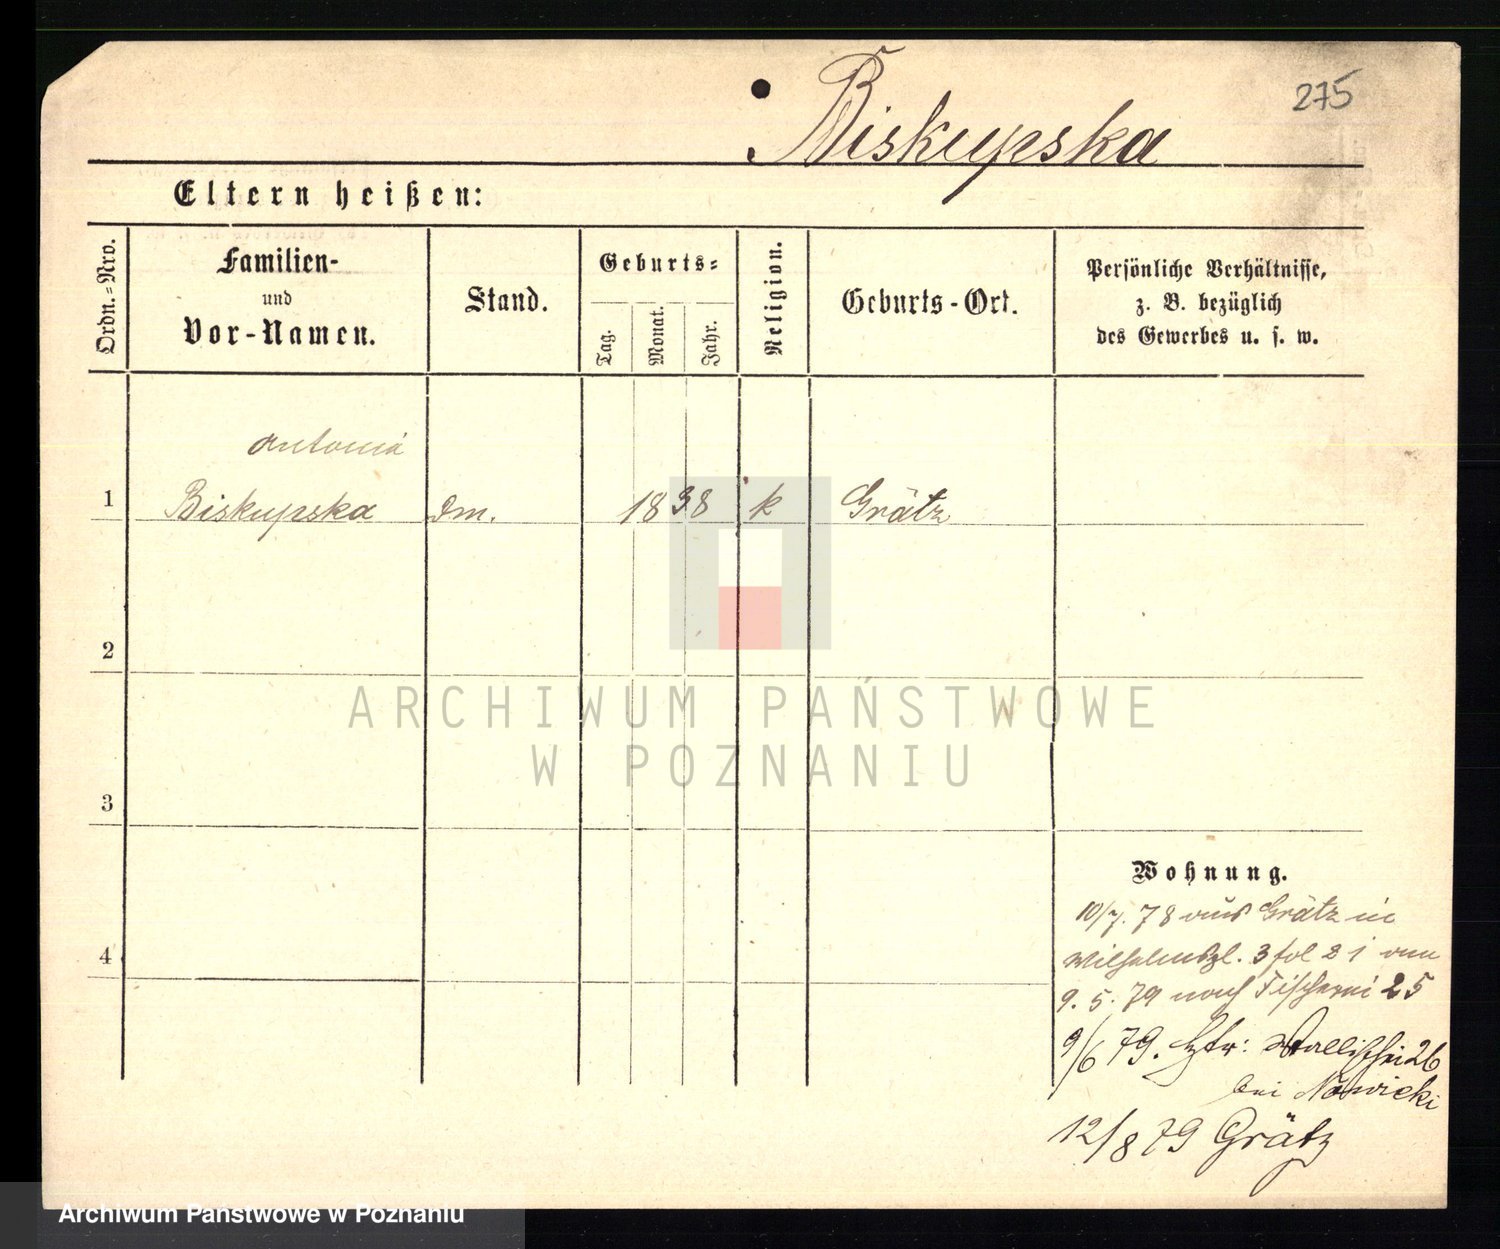 275
Biskupska
Eltern heißen:
Ordn.-Nro.
Familien-
und
Vor-Namen.
Stand.
Geburts-
Tag.
Monat.
Jahr.
Religion.
Geburts-Ort.
Persönliche Verhältnisse,
z. B. bezüglich
des Gewerbes u. s. w.
Antonia
1 Biskupska Dm. 1838 k Grätz
2
3
4
Wohnung.
10/7. 78 aus Grätz in
Wilhelmspl. 3 fol 21
9. 5. 79 nach Fischerei 25
9/6 79. Wallischei 26
bei Nowicki
12/8 79 Grätz
ARCHIWUM PAŃSTWOWE
W POZNANIU
Archiwum Państwowe w Poznaniu